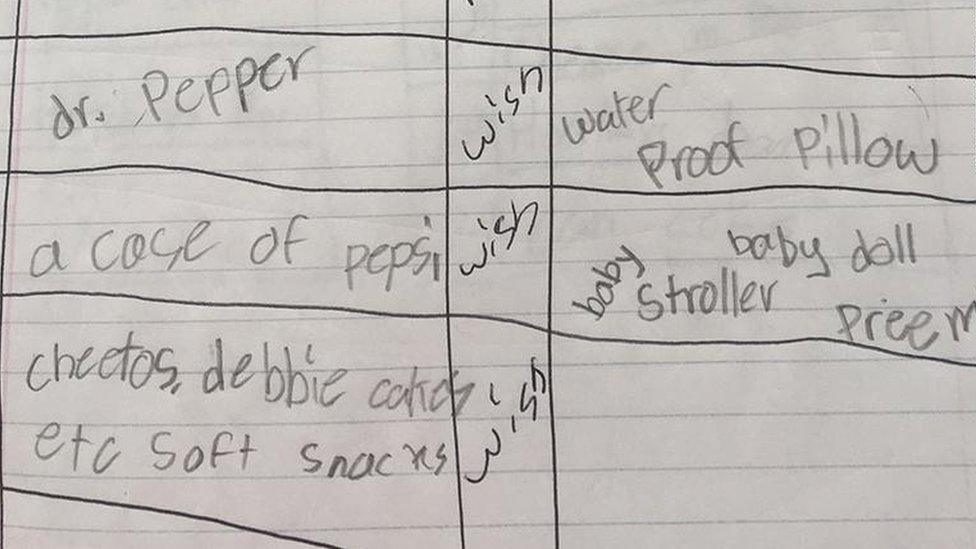 dr. Pepper
wish
water
Proof Pillow
a case of pepsi
wish
baby doll
baby stroller
Preem
cheetos, debbie cakes
etc soft snacks
wish